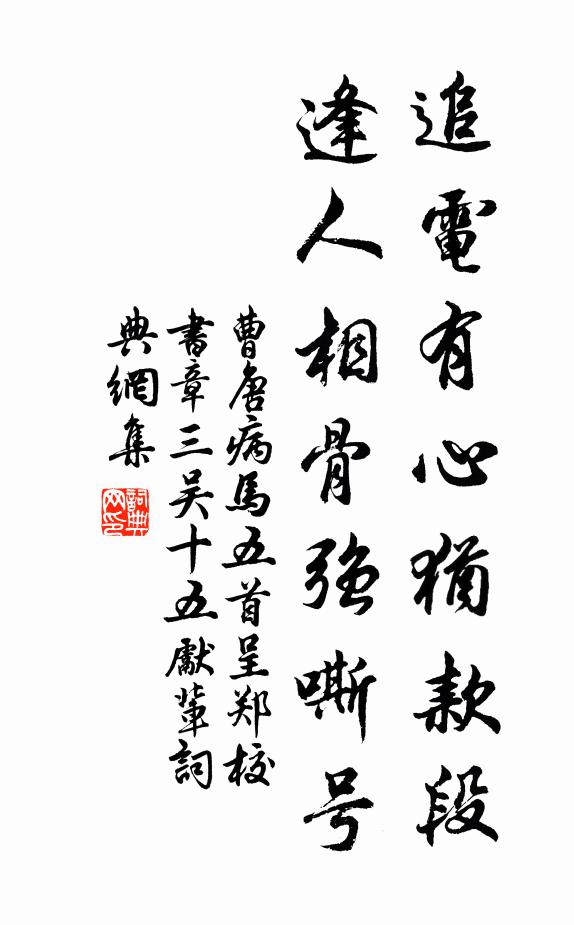 追電有心猶款段
逢人相骨强嘶号
曹唐病馬五首呈郑校
書章三吴十五獻輩詞
典網集
詞典网印